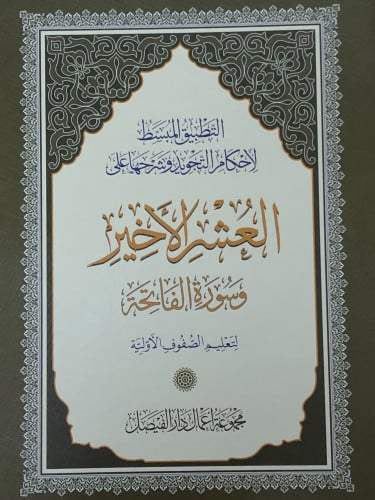 التطبيق المبسط
لأحكام التجويد وشرحها على
العشر الأخير
وسورة الفاتحة
لتعليم الصفوف الأولية
مجموعة أعمال دار الفيصل